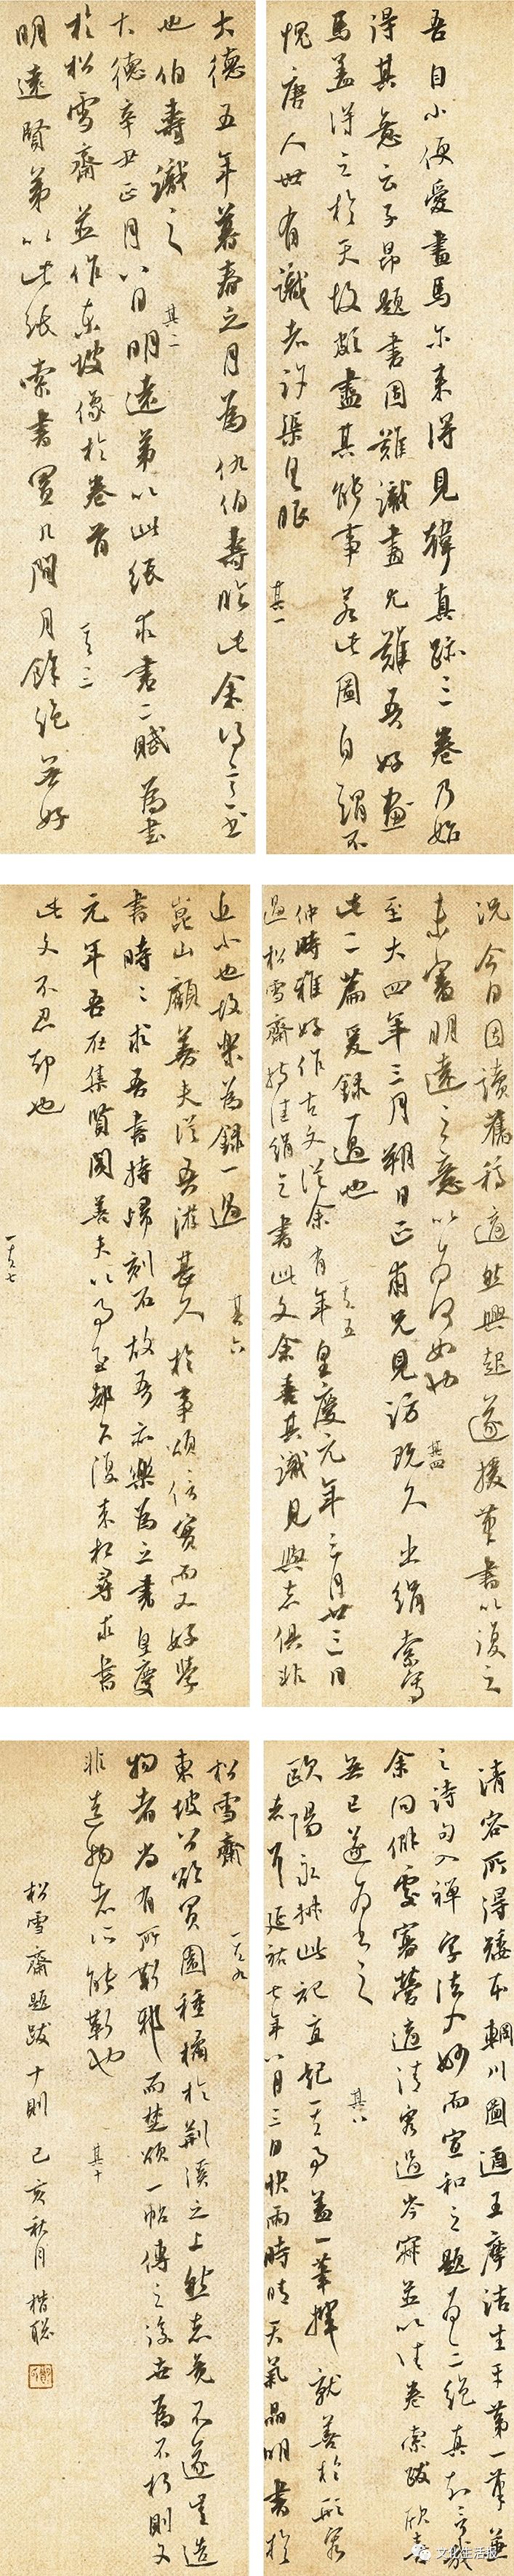 吾自小便愛畫馬尔来得見韓真跡三卷乃始
得其意云子昂題書固難識畫尤難吾好畫
馬蓋得之於天故頗盡其能事若此圖自謂不
愧唐人世有識者許渠具眼 其一
大德五年暮春之月為仇伯壽臨此余得意書
也伯壽識之 其二
大德辛丑正月八日明遠弟以此紙求書二賦為書
於松雪齋並作東坡像於卷首 其三
明遠賢弟以此紙索書置几間月餘絕無好
況今日因讀舊稿適然興起遂援筆書以復之
未審明遠之意以為何如也 其四
至大四年三月朔日正甫兄見訪既久出絹索寫
此二篇爰錄一過也 其五
仲時雅好作古文從余有年皇慶元年三月廿三日
過松雪齋持佳絹乞書此文余喜其識見與志俱非
其六
崑山顧善夫從吾游甚久於事頗信實而又好學
書時時求吾書持歸刻石故吾亦樂為之書皇慶
元年吾在集賢聞善夫以事至都下復来相尋求書
此文不忍却也 其七
清容所得矮本輞川圖迺王摩詰生平第一筆
之詩句入禪字法入妙而宣和之題
無已遂為書之 其八
歐陽永叔此記直記其事蓋一筆揮就善於形容
者耳延祐七年八月三日快雨時晴天氣晶明書於
松雪齋 其九
東坡公欲買園種橘於荆溪之上然志竟不遂豈造
物者尚有所靳邪而楚頌一帖傳之後世為不朽則又
非造物者所能靳也 其十
松雪齋題跋十則 己亥秋月 楷聡
文化生活报